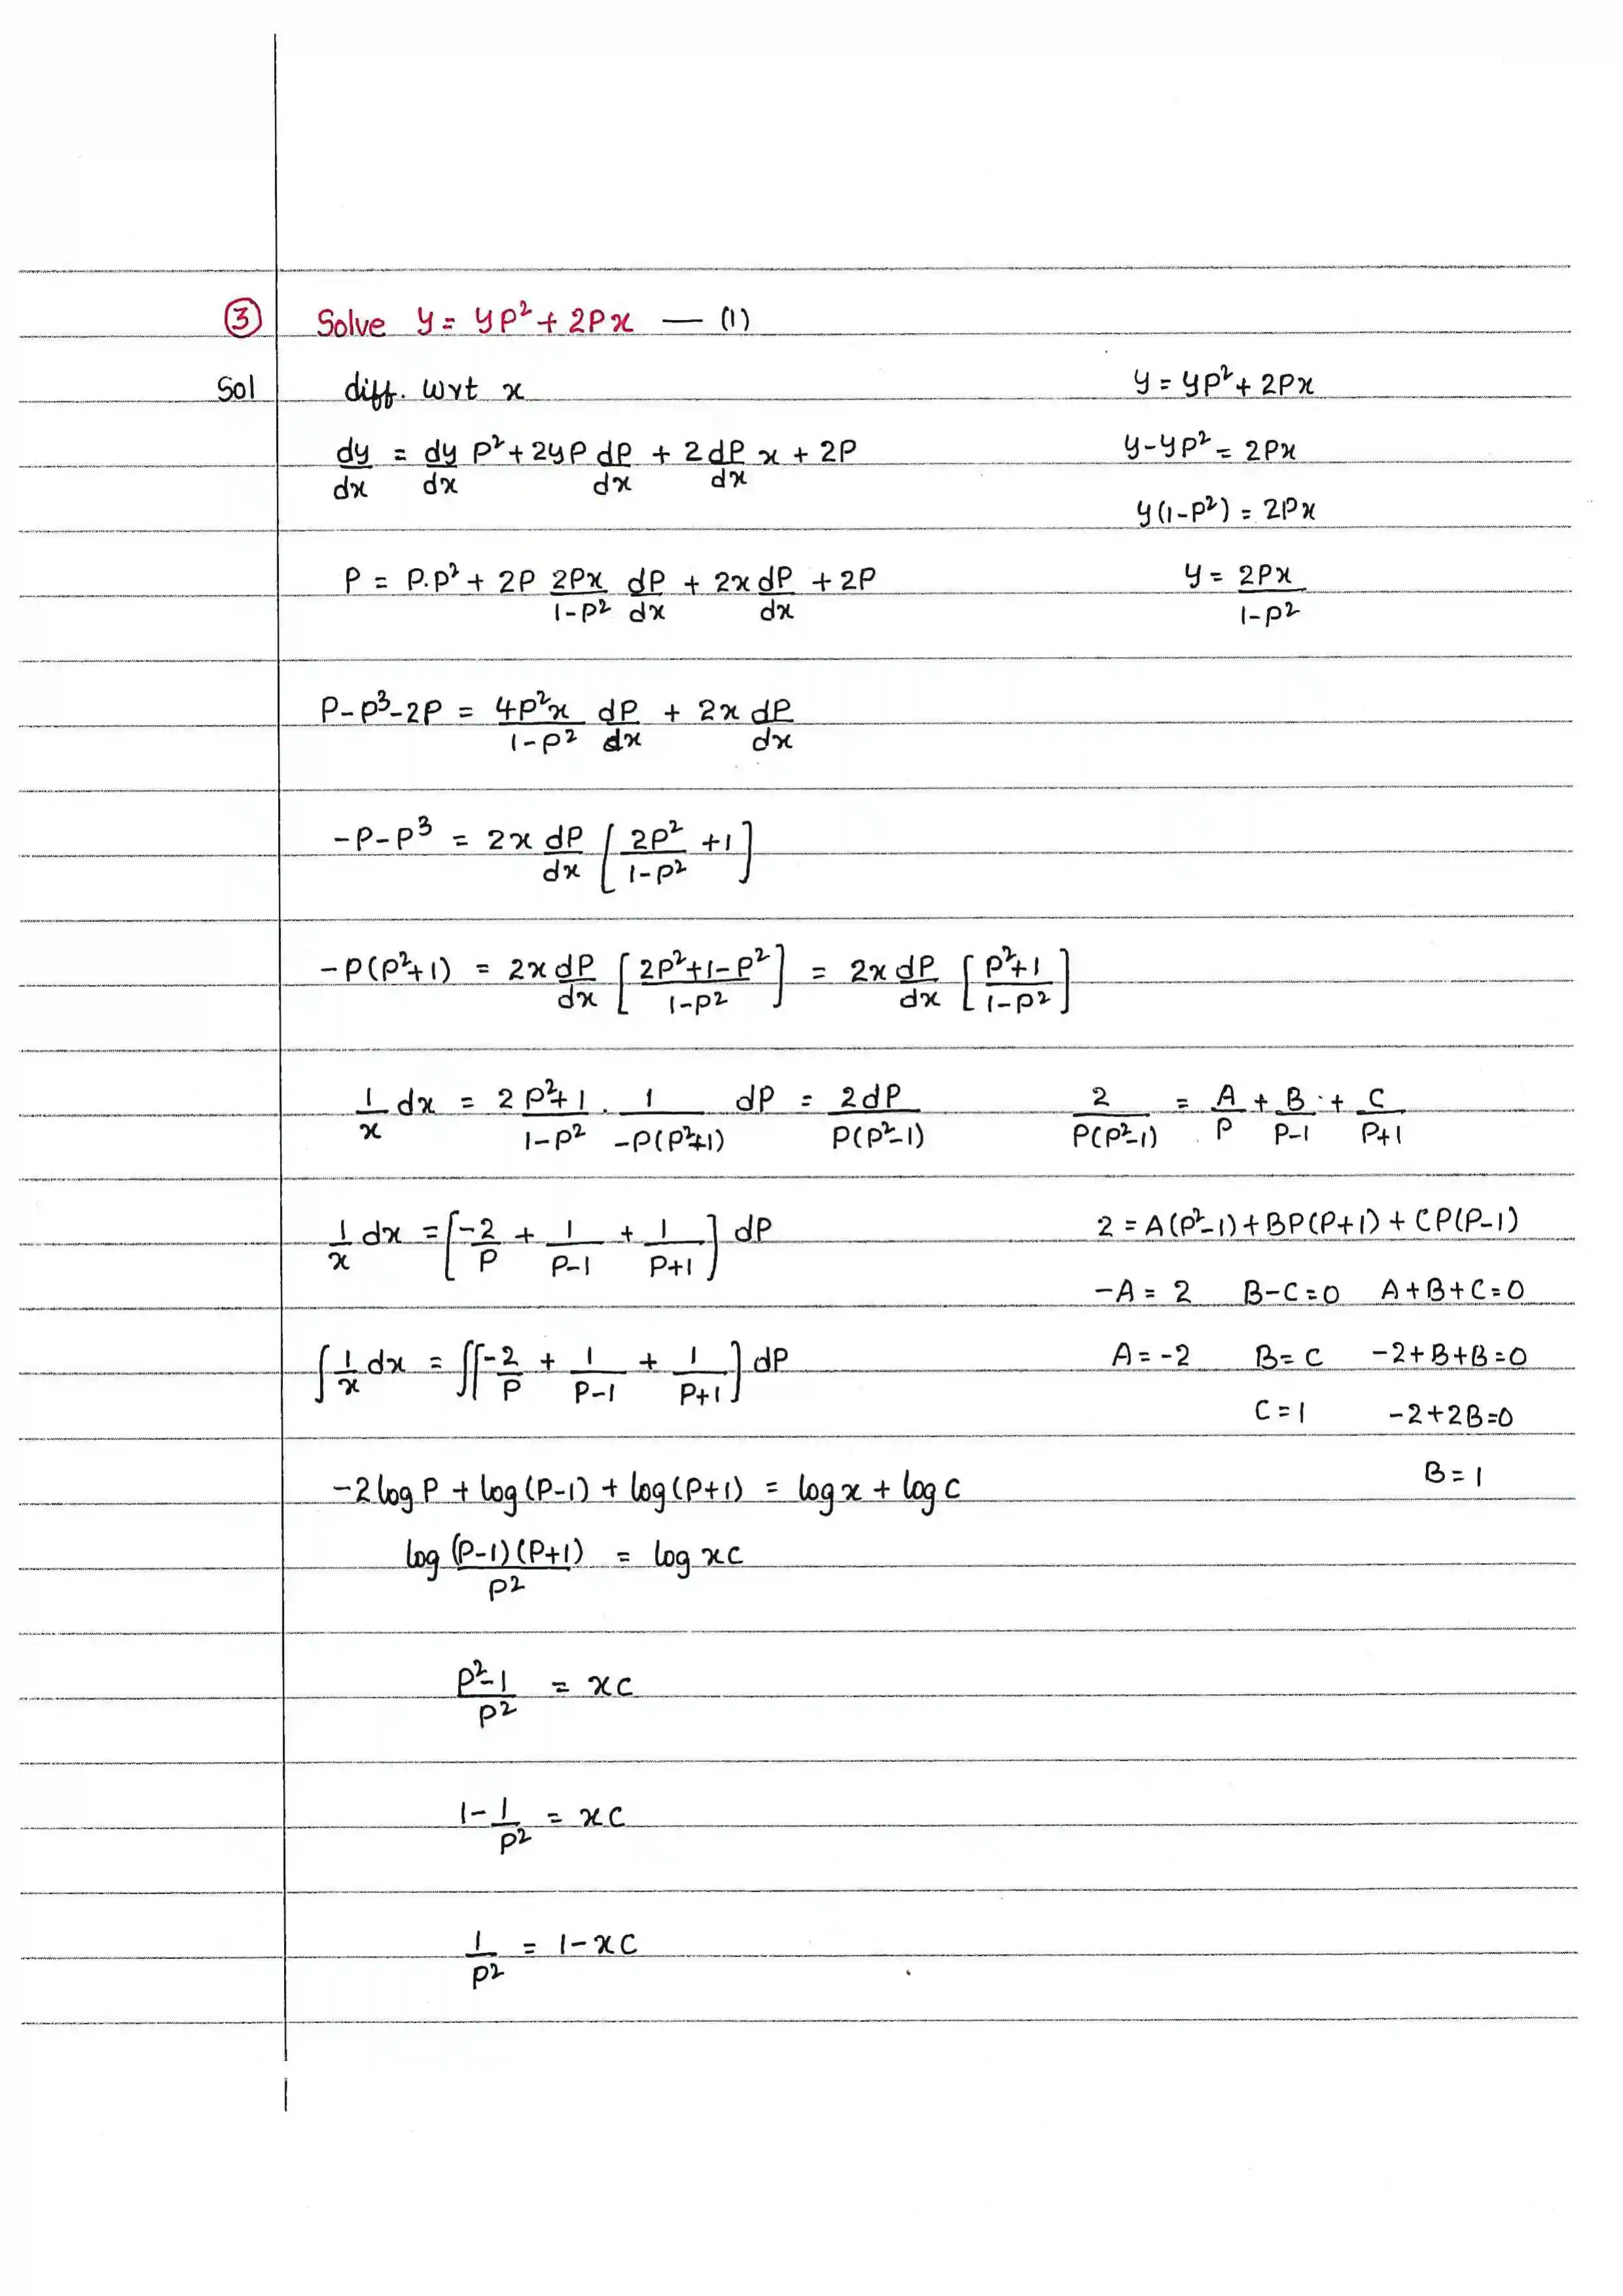 ③ Solve y = yp² + 2px — (1)
Sol diff. wrt x
y = yp² + 2px
dy/dx = dy/dx p² + 2yp dp/dx + 2 dp/dx x + 2p
y - yp² = 2px
y(1-p²) = 2px
p = p.p² + 2p 2px/(1-p²) dp/dx + 2x dp/dx + 2p
y = 2px/(1-p²)
p - p³ - 2p = 4p²x/(1-p²) dp/dx + 2x dp/dx
-p - p³ = 2x dp/dx [2p²/(1-p²) + 1]
-p(p²+1) = 2x dp/dx [(2p²+1-p²)/(1-p²)] = 2x dp/dx [(p²+1)/(1-p²)]
1/x dx = 2 (p²+1)/(1-p²) . 1/(-p(p²+1)) dp = 2dp/(p(p²-1))
2/(p(p²-1)) = A/p + B/(p-1) + C/(p+1)
1/x dx = [-2/p + 1/(p-1) + 1/(p+1)] dp
2 = A(p²-1) + Bp(p+1) + Cp(p-1)
-A = 2 B-C=0 A+B+C=0
∫ 1/x dx = ∫[-2/p + 1/(p-1) + 1/(p+1)] dp
A = -2 B = C -2+B+B=0
C = 1 -2+2B=0
B = 1
-2 log p + log(p-1) + log(p+1) = log x + log c
log (p-1)(p+1)/p² = log xc
(p²-1)/p² = xc
1 - 1/p² = xc
1/p² = 1 - xc